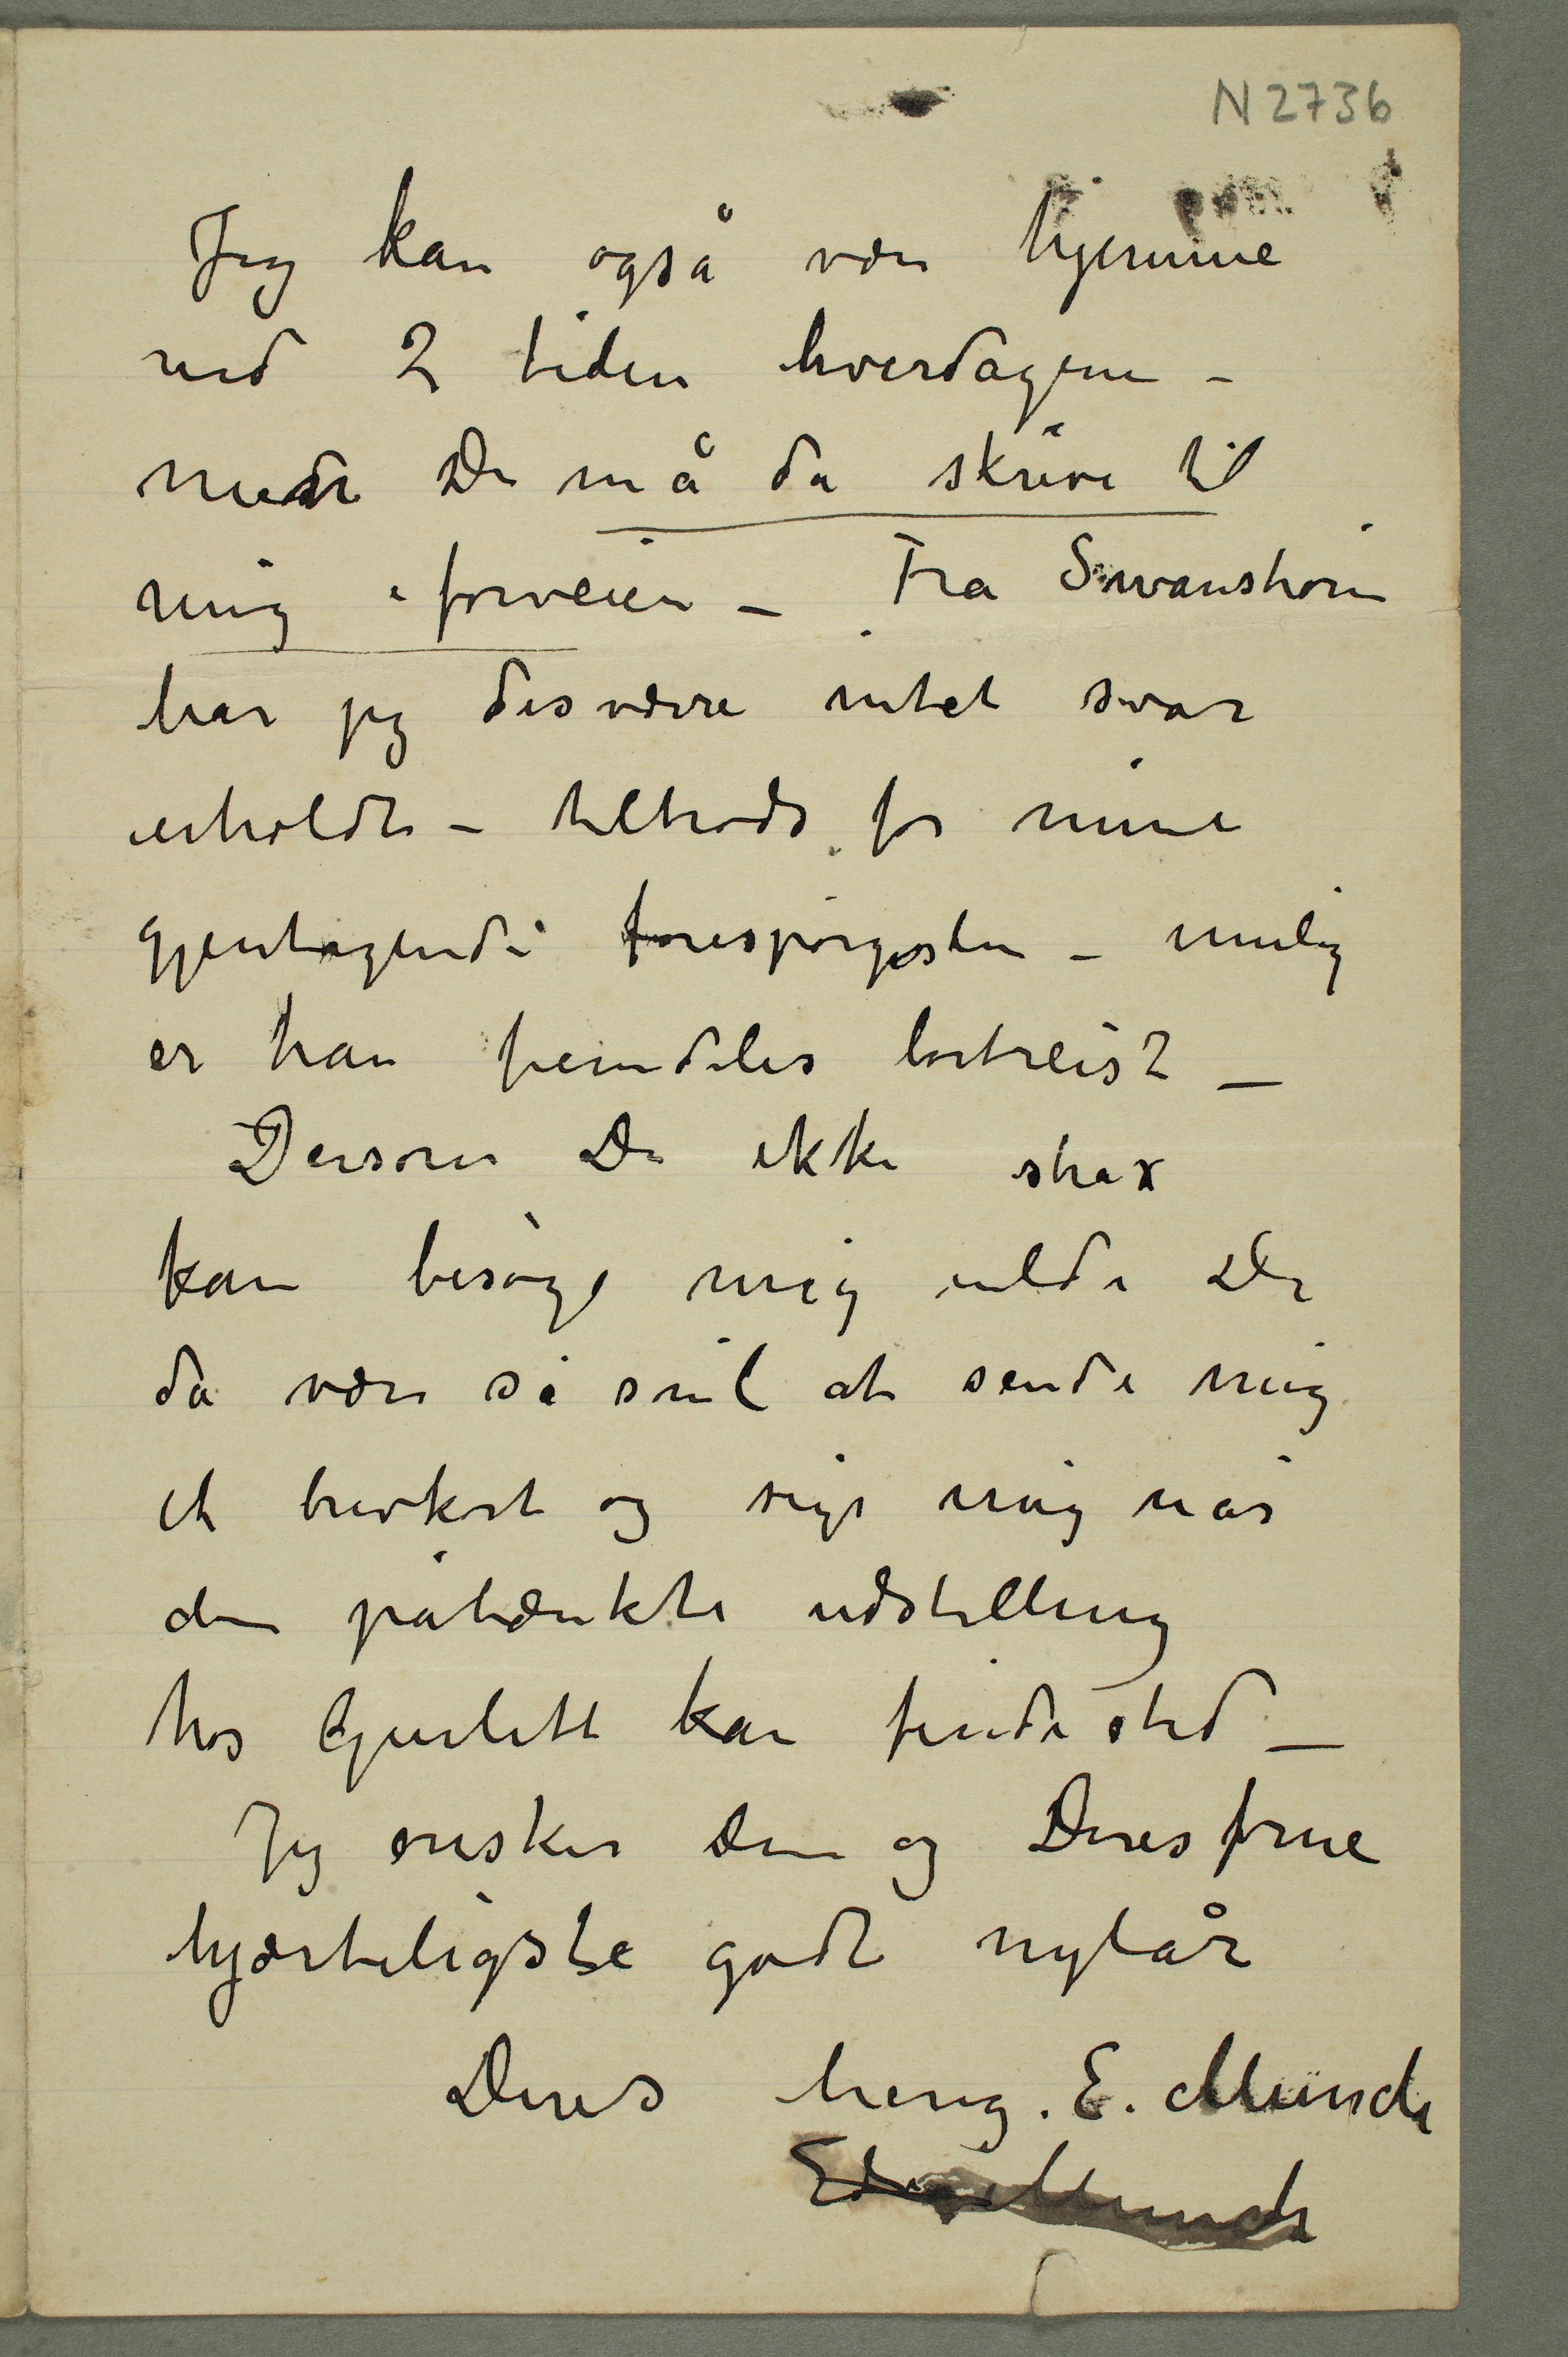 N 2736
Jeg kan også være hjemme
ved 2 tiden hverdagene –
men De må da skrive til
mig i forveien – Fra Swanström
har jeg desværre intet svar
erholdt – tiltrods for mine
gjentagende forespørgsler – mulig
er han fremdeles bortreist –
Dersom De ikke strax
kan besøge mig vilde De
da være så snil at sende mig
et brevkort og sige mig når
den påtænkte udstilling
hos Gurlitt kan finde sted –
Jeg ønsker Dem og Deres frue
hjærteligste godt nytår
Deres hærg. E. Munch
Edv Munch